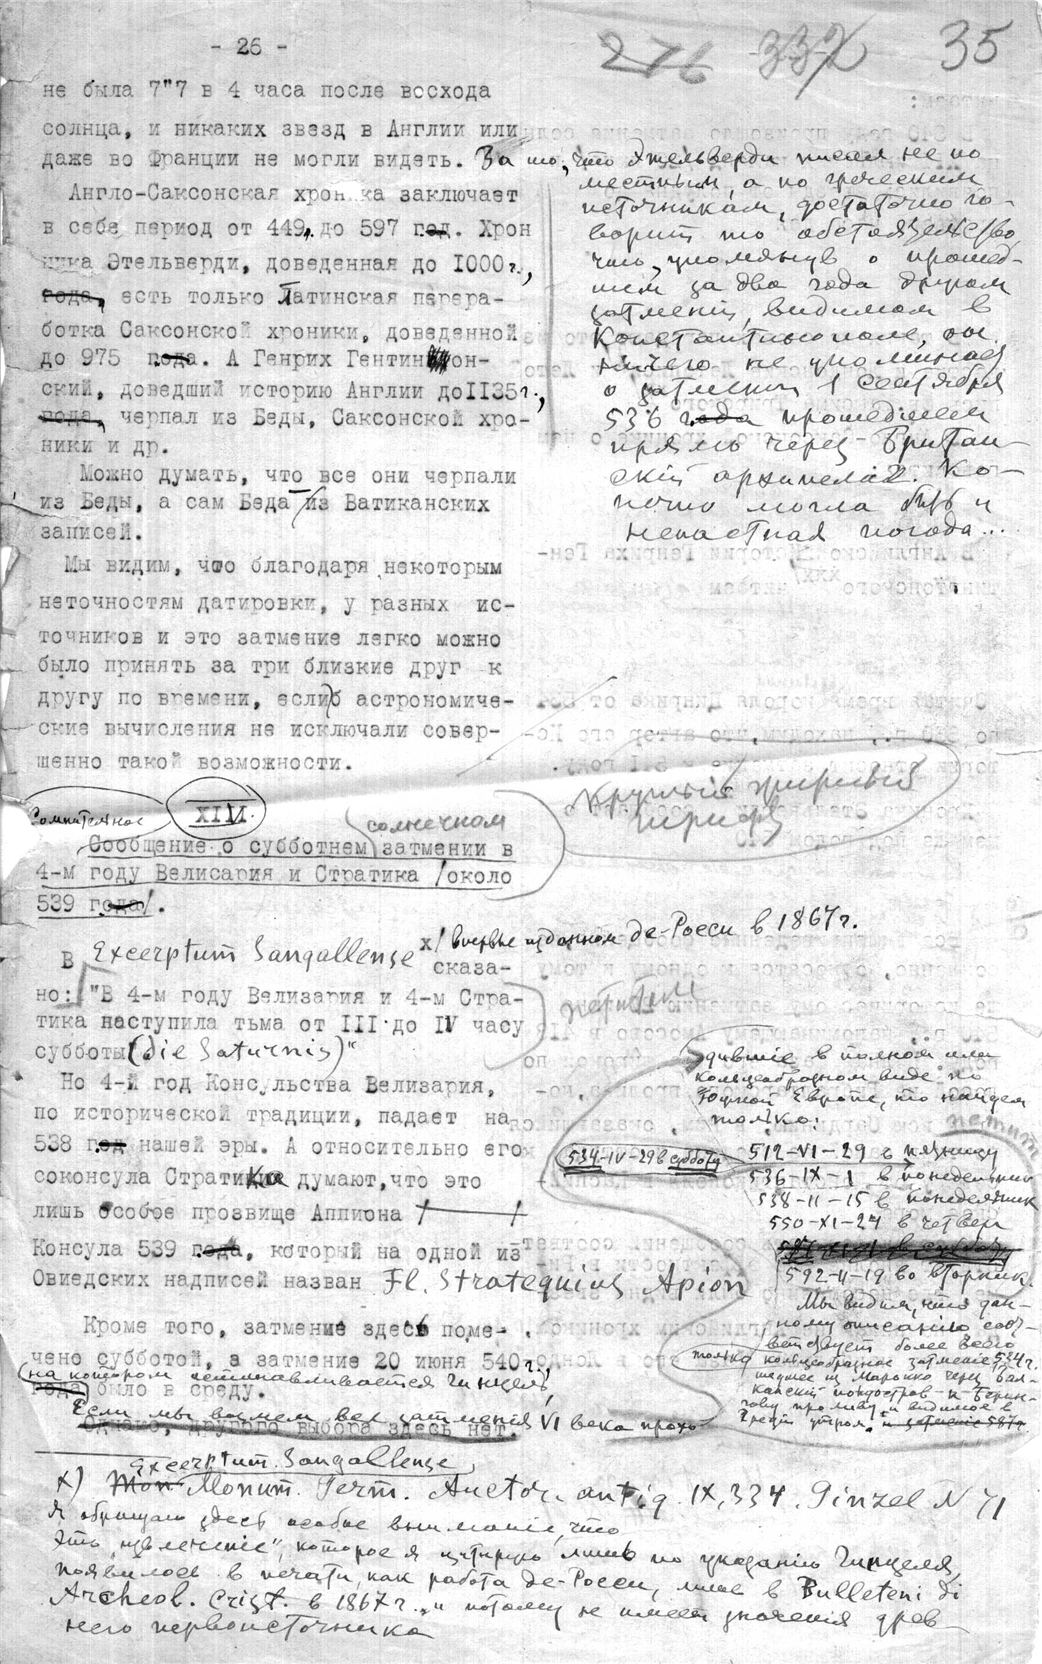 - 26 -
276 337 35
не была 7"7 в 4 часа после восхода
солнца, и никаких звезд в Англии или
даже во Франции не могли видеть. За то, что Этельверди писал не по
местным, а по греческим
источникам, достаточно го-
ворит то обстоятельство,
что, упомянув о прошед-
шем за два года другом
затмении, видимом в
Константинополе, он
ничего не упоминает
о затмении 1 сентября
536 года прошедшем
прямо через Британ-
ский архипелаг. Ко-
нечно могла быть и
ненастная погода...
Англо-Саксонская хроника заключает
в себе период от 449 г. до 597 год. Хрон
ника Этельверди, доведенная до 1000 г.,
года, есть только Латинская перера-
ботка Саксонской хроники, доведенной
до 975 года. А Генрих Гентингтон-
ский, доведший историю Англии до II35 г.,
года, черпал из Беды, Саксонской хро-
ники и др.
Можно думать, что все они черпали
из Беды, а сам Беда – из Ватиканских
записей.
Мы видим, что благодаря некоторым
неточностям датировки, у разных ис-
точников и это затмение легко можно
было принять за три близкие друг к
другу по времени, если б астрономиче-
ские вычисления не исключали совер-
шенно такой возможности.
Крупный жирный
шрифт
Сомнительное
XIII.
солнечном
Сообщение о субботнем затмении в
4-м году Велисария и Стратика /около
539 года/.
В Excerptum Sangallense x/ впервые изданном де-Росси в 1867 г.
сказа-
но: "В 4-м году Велизария и 4-м Стра-
тика наступила тьма от III до IV часу
субботы (die Saturnis)"
петитом
Но 4-й год Консульства Велизария,
по исторической традиции, падает на
538 год нашей эры. А относительно его
соконсула Стратика думают, что это
лишь особое прозвище Аппиона
Консула 539 года, который на одной из
Овиедских надписей назван Fl. Strateguius Apion
Кроме того, затмение здесь поме-
чено субботой, а затмение 20 июня 540 г.
на котором останавливается Гинцель,
года было в среду.
Если мы возьмем все затмения VI века прохо-
Однако, другого выбора здесь нет.
дившие в полном или
кольцеобразном виде по
Южной Европе, то найдем
только:
петит
534-IV-29 в субботу
512-VI-29 в пятницу
536-IX-1 в понедельник
538-II-15 в понедельник
550-XI-24 в четверг
592-II-19 во вторник.
Мы видим, что дан-
ному описанию соот-
ветствует более всего
только кольцеобразное затмение 534 г.
шедшее из Марокко через Бал-
канский полуостров к Берин-
гову проливу и видимое в
Греции утром, и затмение 587 г.
Excerptum Sangallense,
x) Mon Monum. Germ. Auctor. antiq. IX, 334. Ginzel N 71
Я обращаю здесь особое внимание, что
это „извлечение", которое я цитирую лишь по указанию Гинцеля,
появилось в печати, как работа де-Росси, лишь в Bulleteni di
Archeol. Crist. в 1867 г., и потому не имеет значения древ-
него первоисточника